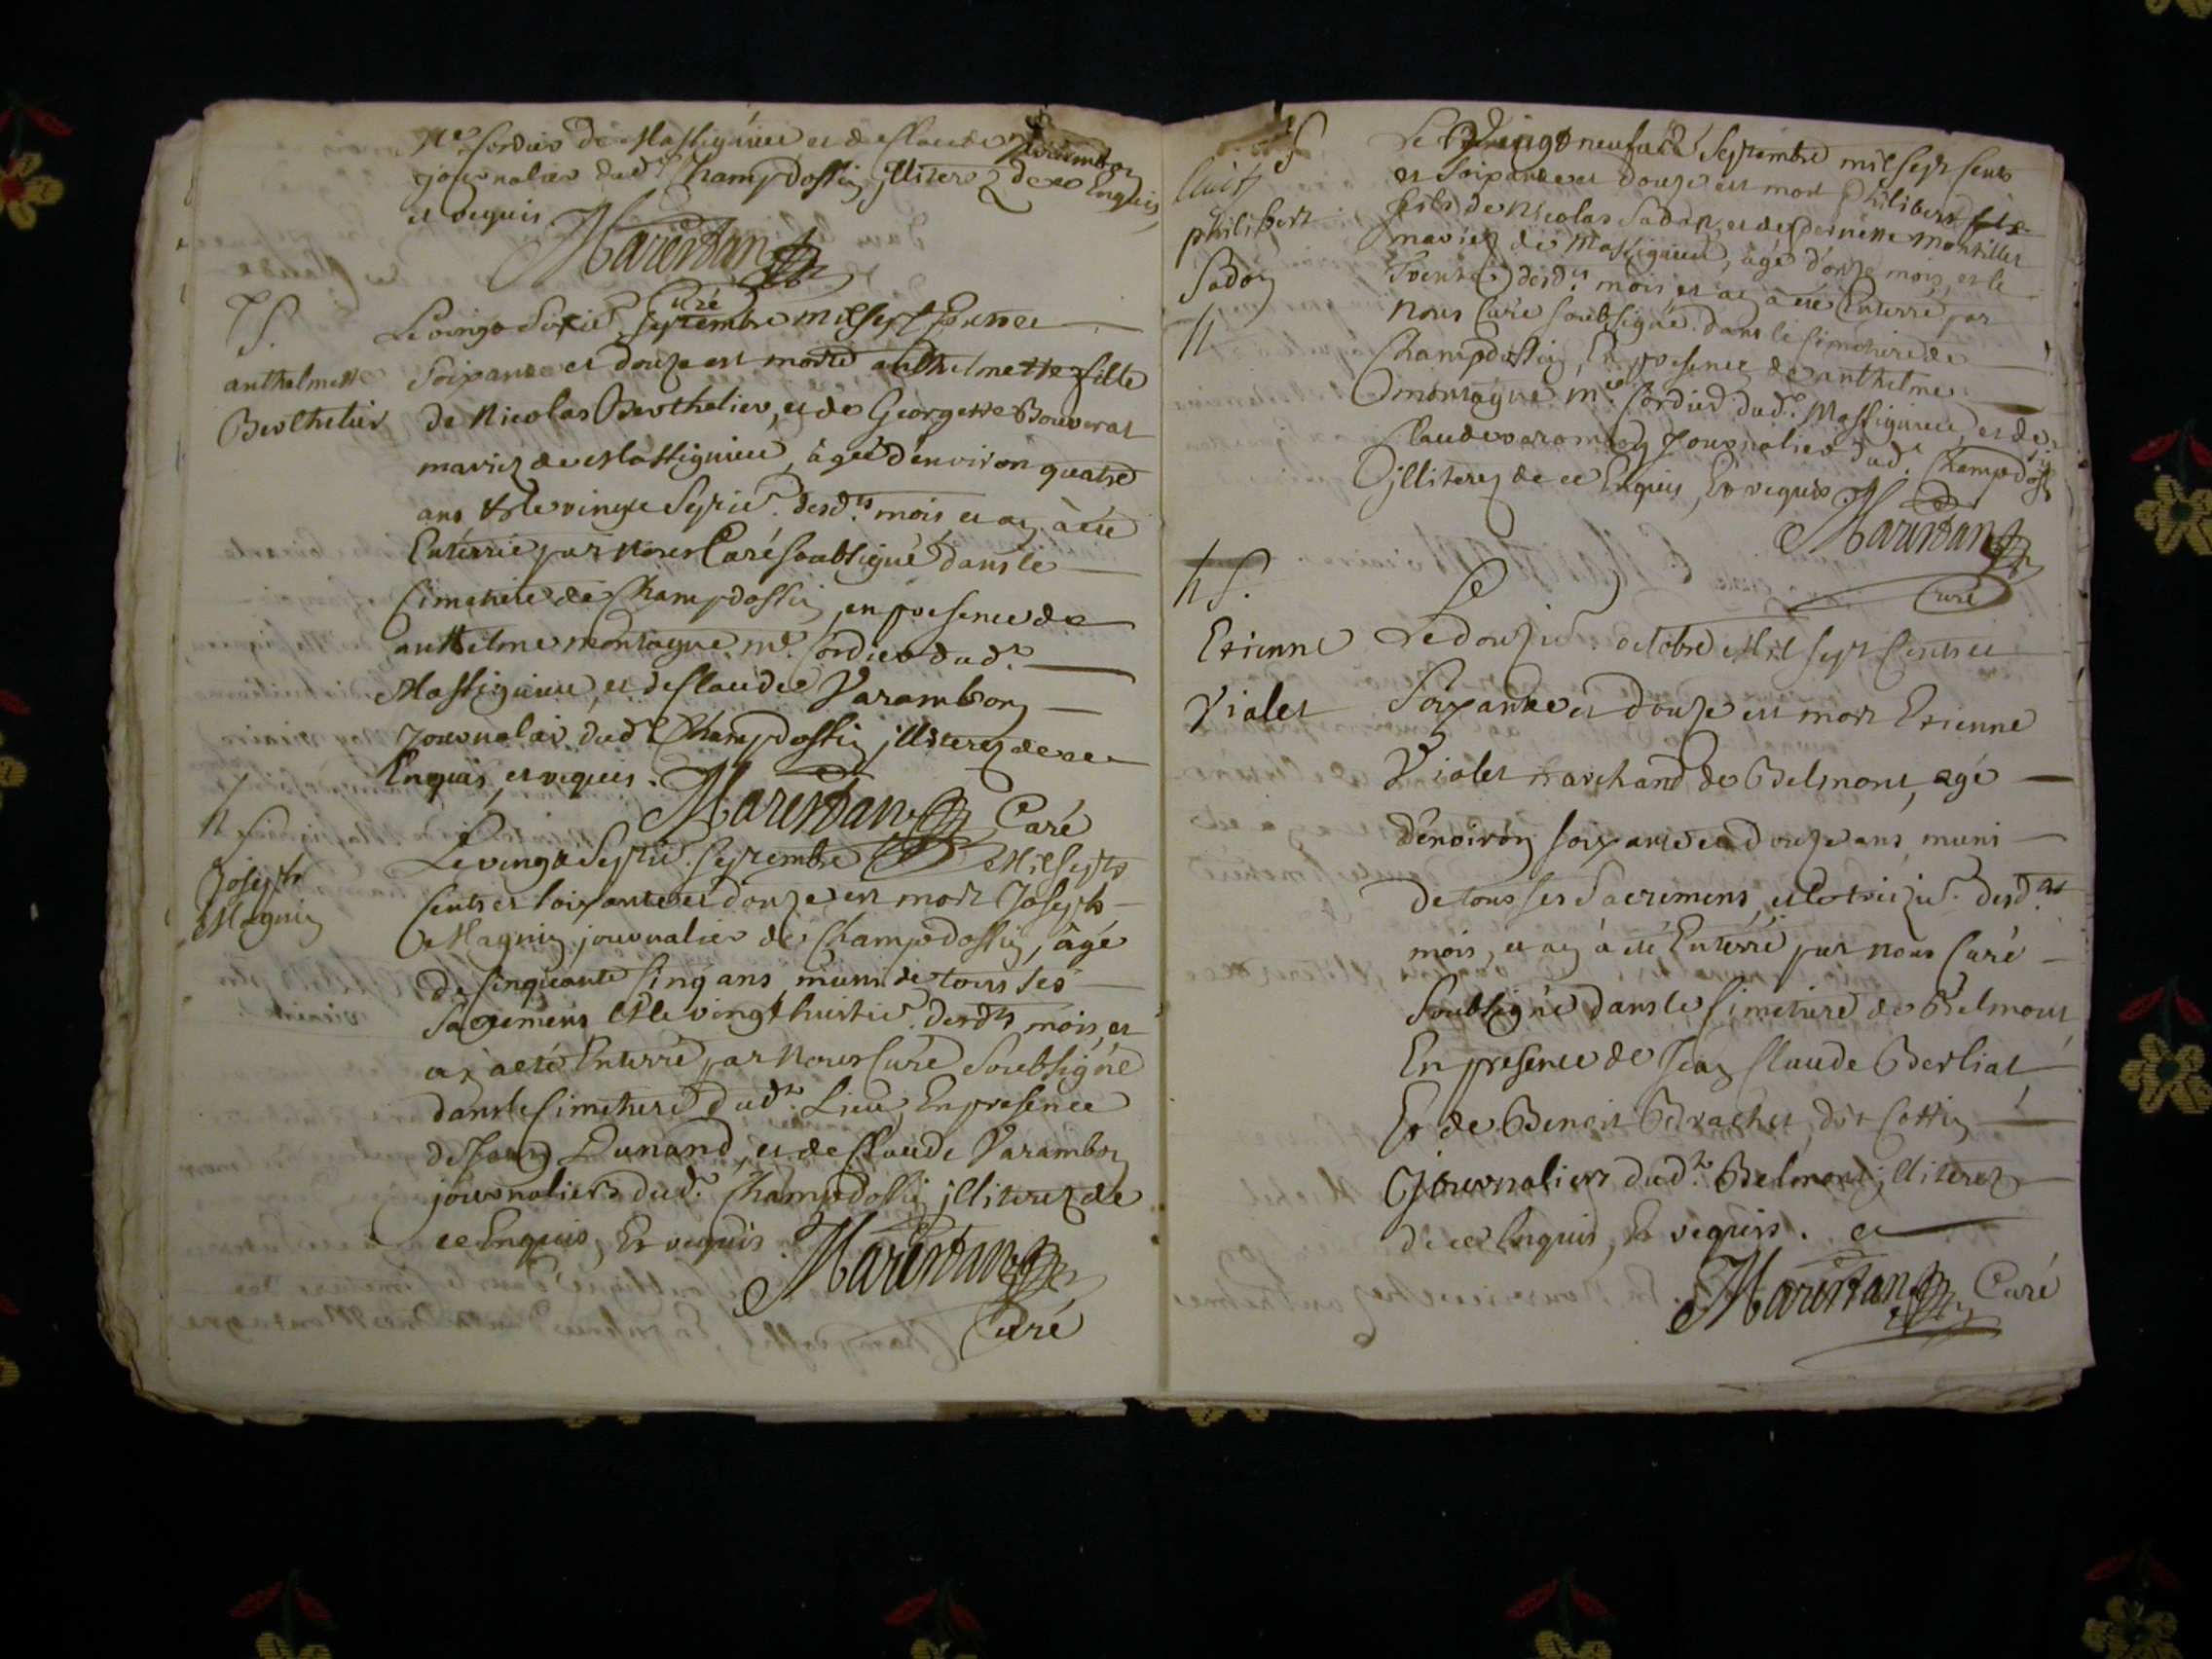 me Cordier de Massignieu et de Claude Varambon
journalier dudt Champdossin illiterez de ce Enquis
et requis
Marestan
Curé
S.
anthelmette
Berthelier
Le vingt Sixie. Septembre mil sept Cents et
Soixante et douze est morte anthelmette fille
de Nicolas Berthelier, et de Georgette Bouverat
mariez de Massignieu, âgée d'environ quatre
ans et le vingt Septie. desdts mois et an à été
Enterrée par Nous Curé Soubsigné dans le
Cimetiere de Champdossin en presence de
anthelme montagne me. Cordier dudt.
Massignieu, et de Claude Varambon
Journalier dudt Champdossin illiterez de ce
Enquis, et requis.
Marestan Curé
Joseph
Magnin
Le vingt Septie. Septembre Mil Sept
Cents et soixante et douze est mort Joseph
Magnin journalier de Champdossin, âgé
de Cinquante Cinq ans muni de tous ses
Sacremens et le vingt huitie. desdts mois, et
an a eté Enterré par Nous Curé Soubsigné
dans le Cimetiere dudt. Lieu, En presence
de Dunand, et de Claude Varambon
journaliers dudt. Champdossin illiterez de
ce Enquis, Et requis.
Marestan
Curé
philibert
Sadon
Le Vingt neufvie Septembre mil sept Cents
et Soixante et douze est mort Philibert
fils de Nicolas Sadon, et de pernette montillet
mariez de Massignieu, âgé d'onze mois, et le
Trente desdts mois, et an à été Enterré par
Nous Curé Soubsigné dans le Cimetiere de
Champdossin, En presence de anthelme
montagne me. Cordier dudt. Massignieu, et de
Claude varambon Journalier dudt. Champdossin
illiterez de ce Enquis, Et requis
Marestan
Curé
h S.
Etienne
Violet
Le douzie. octobre Mil Sept Cents et
Soixante et douze est mort Etienne
Violet marchand de Belmont, agé
d'environ soixante et douze ans, muni
de tous ses Sacremens, et le treizie. desdts
mois, et an à eté Enterré par nous Curé
Soubsigné dans le Cimetiere de Belmont
En presence de Jean Claude Berliat
Et de Benoit Brachet, dit Cottin
Journaliers dudt. Belmont illiterez
de ce Enquis, Et requis.
Marestan Curé